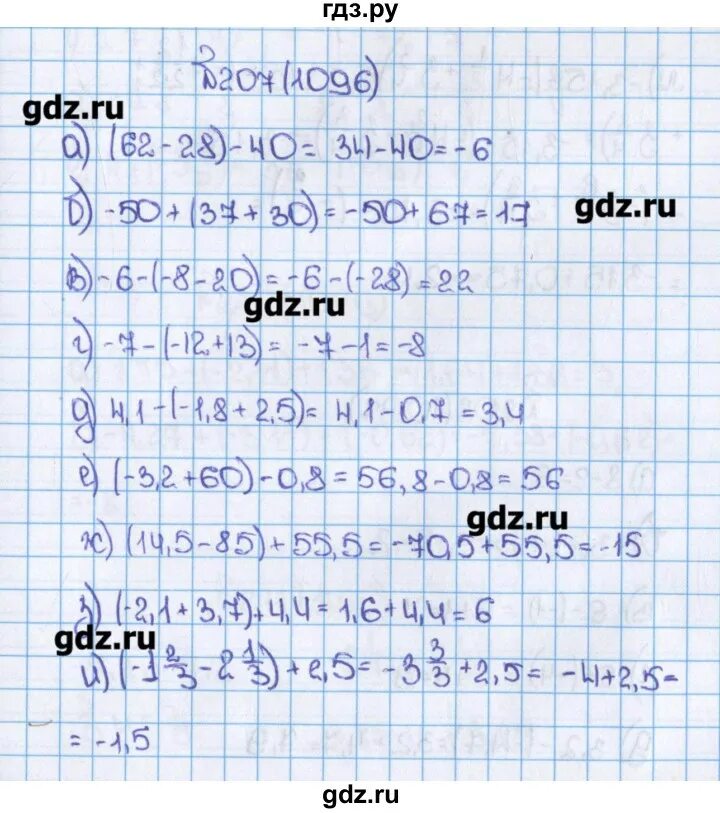 гдз.ру
№207(1096)
gdz.ru
а) (62-28)-40= 34-40=-6
б) -50+(37+30)=-50+67=17
gdz.ru
в) -6-(-8-20)=-6-(-28)=22
gdz.ru
г) -7-(-12+13)= -7-1=-8
д) 4,1-(-1,8+2,5)= 4,1-0,7=3,4
е) (-3,2+60)-0,8=56,8-0,8=56
gdz.ru
ж) (14,5-85)+55,5=-70,5+55,5=-15
з) (-2,1+3,7)+4,4=1,6+4,4=6
gdz.ru
и) (-1 2/3 - 2 1/3)+2,5= -3 3/3 +2,5= -4+2,5=
= -1,5
gdz.ru